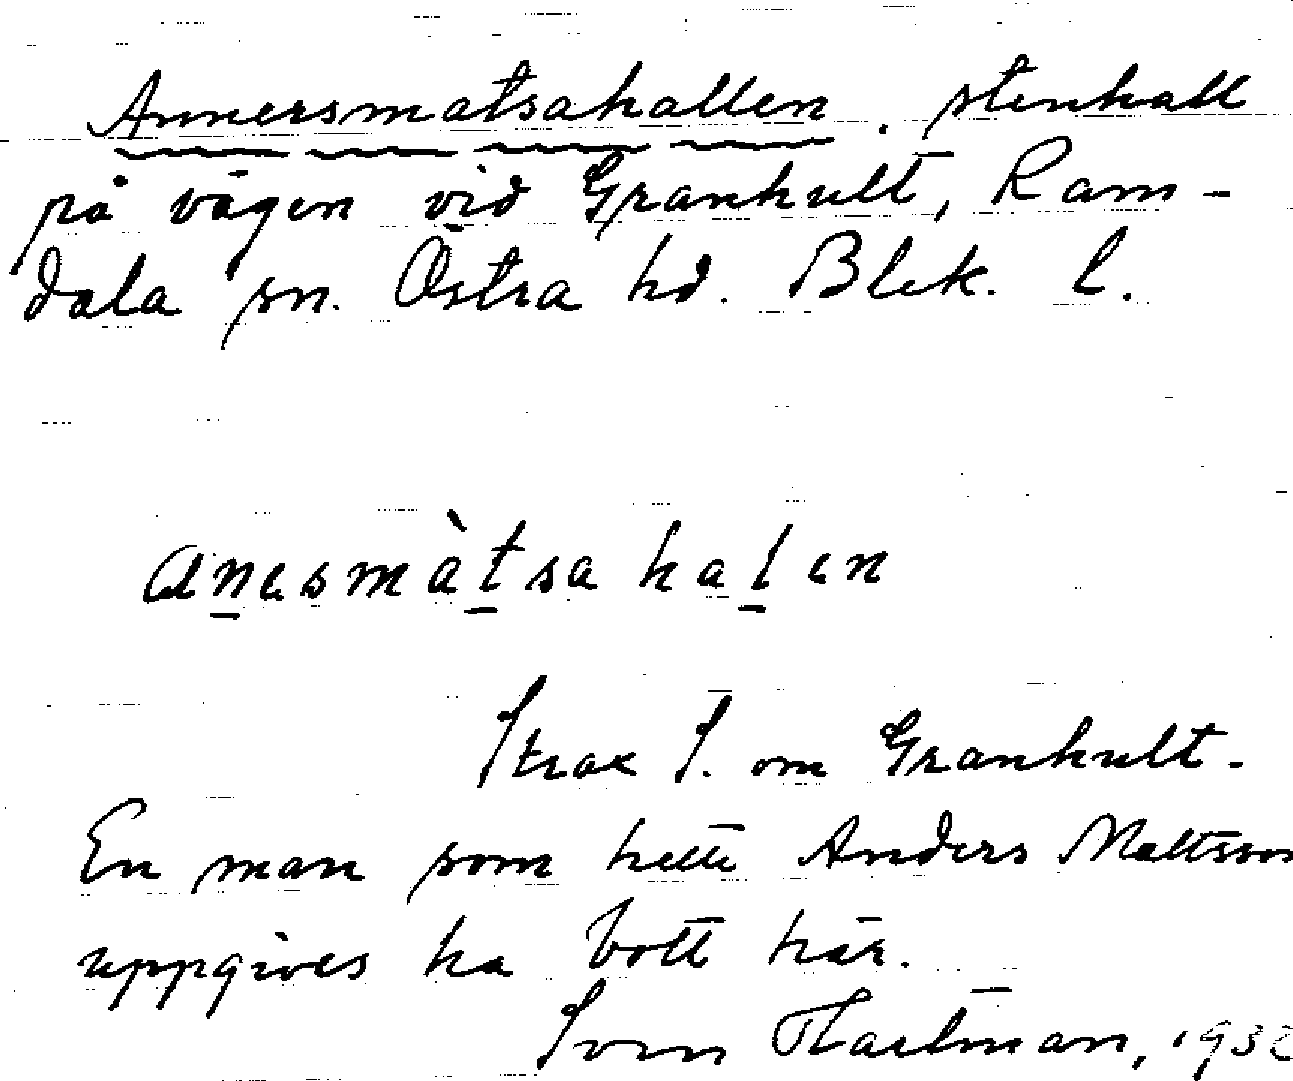 Annersmatsahallen, stenhall
på vägen vid Grankult, Ram-
dala sn. Östra hd. Blek. l.
anesmàtsa halen
Strax S. om Grankult.
En man som hette Anders Mattsson
uppgives ha bott här.
Sven Hartman, 1932